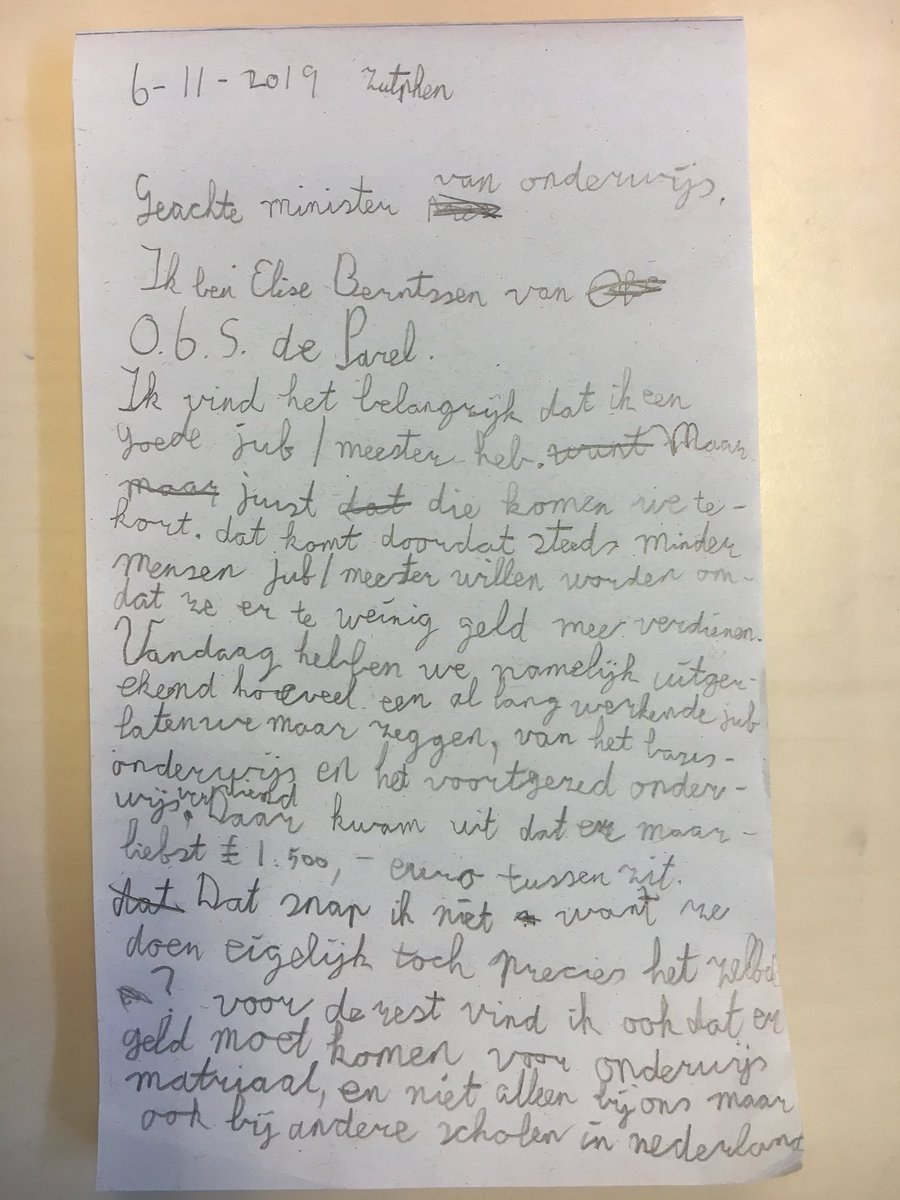 6-11-2019 Zutphen
van onderwijs.
Geachte minister
Ik ben Elise Berntssen van
O.b.S. de Parel.
Ik vind het belangrijk dat ik een
goede jub / meester heb. want Maar
maar juist dat die komen we te-
kort. dat komt doordat steeds minder
mensen jub/meester willen worden om-
dat ze er te weinig geld mee verdienen.
Vandaag hebben we namelijk uitger-
ekend hoeveel een al lang werkende jub
laten we maar zeggen, van het basis-
onderwijs en het voortgezed onder-
verdiend
wijs. Daar kwam uit dat er maar-
liebst £ 1.500,- euro tussen zit.
dat Dat snap ik niet want ze
doen eigelijk toch precies het zelbde
? voor de rest vind ik ook dat er
geld moet komen voor onderwijs
matriaal, en niet alleen bij ons maar
ook bij andere scholen in nederland